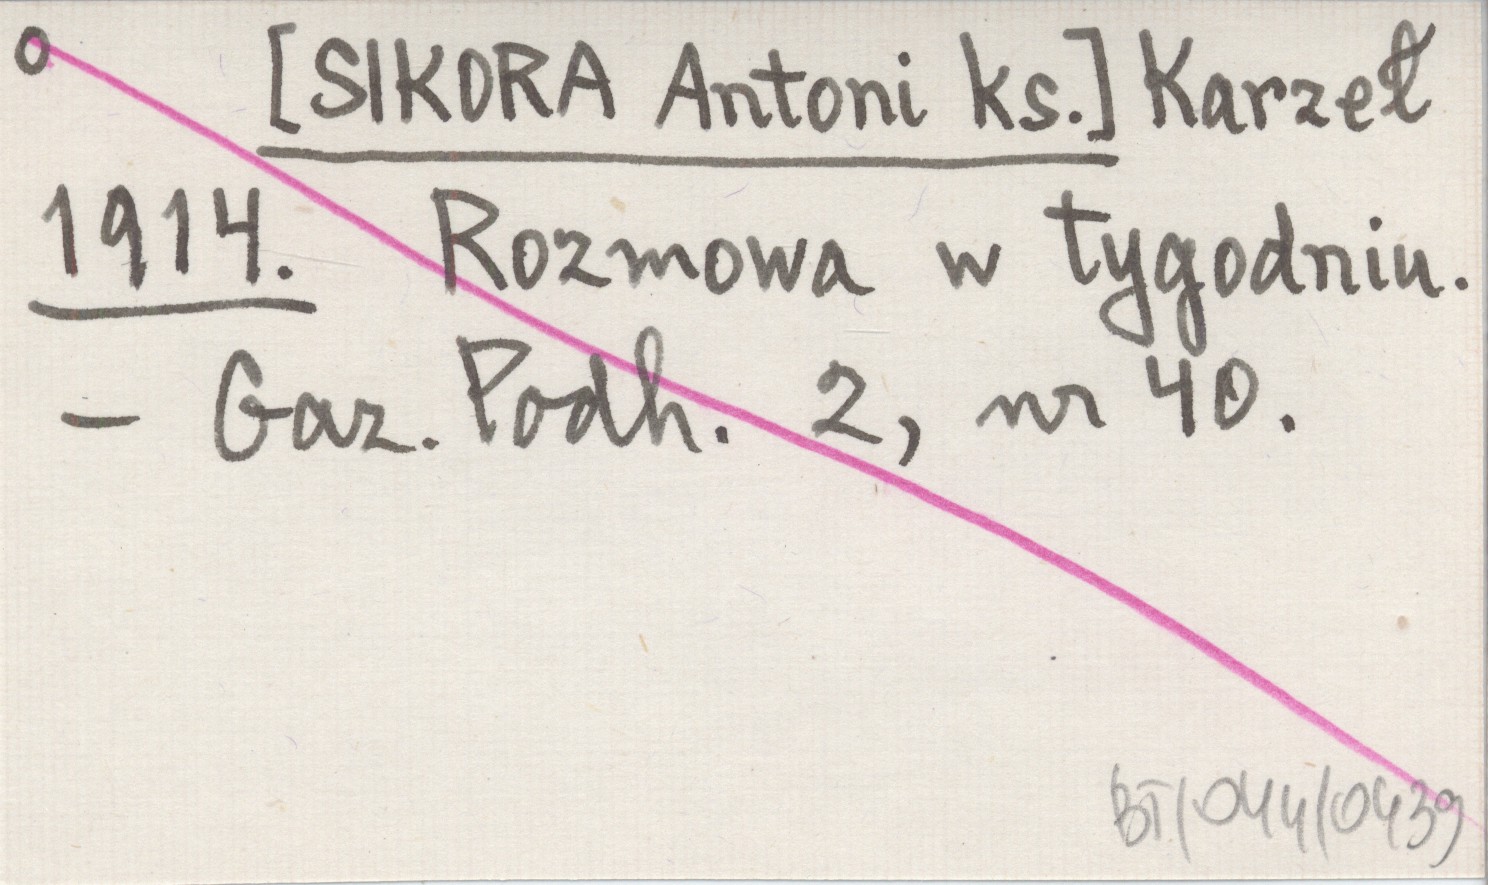 o [SIKORA Antoni ks.] Karzeł
1914. Rozmowa w tygodniu.
- Gaz. Podh. 2, nr 40.
BT/044/0439